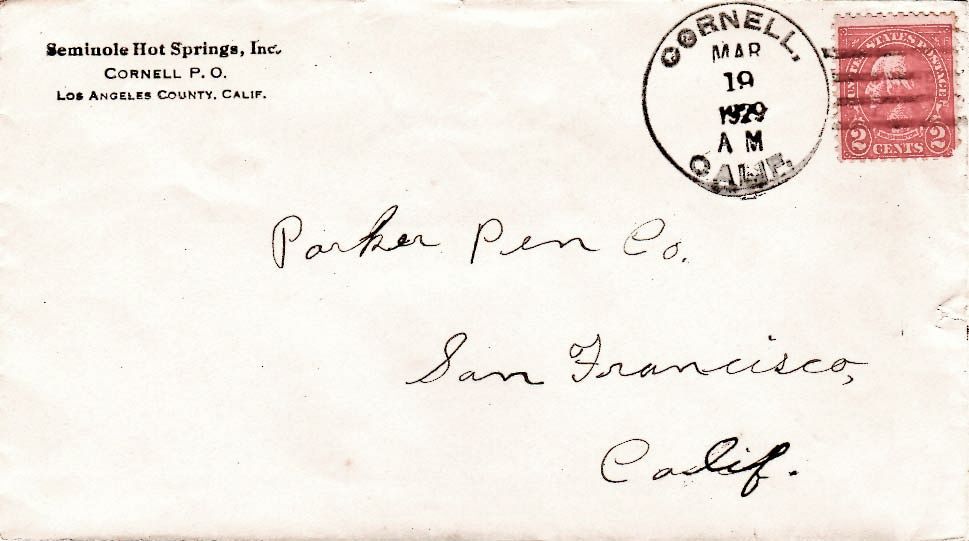 Seminole Hot Springs, Inc.
CORNELL P. O.
LOS ANGELES COUNTY, CALIF.
CORNELL,
MAR
19
1929
A M
CALIF.
UNITED STATES POSTAGE
2 CENTS 2
Parker Pen Co.
San Francisco,
Calif.